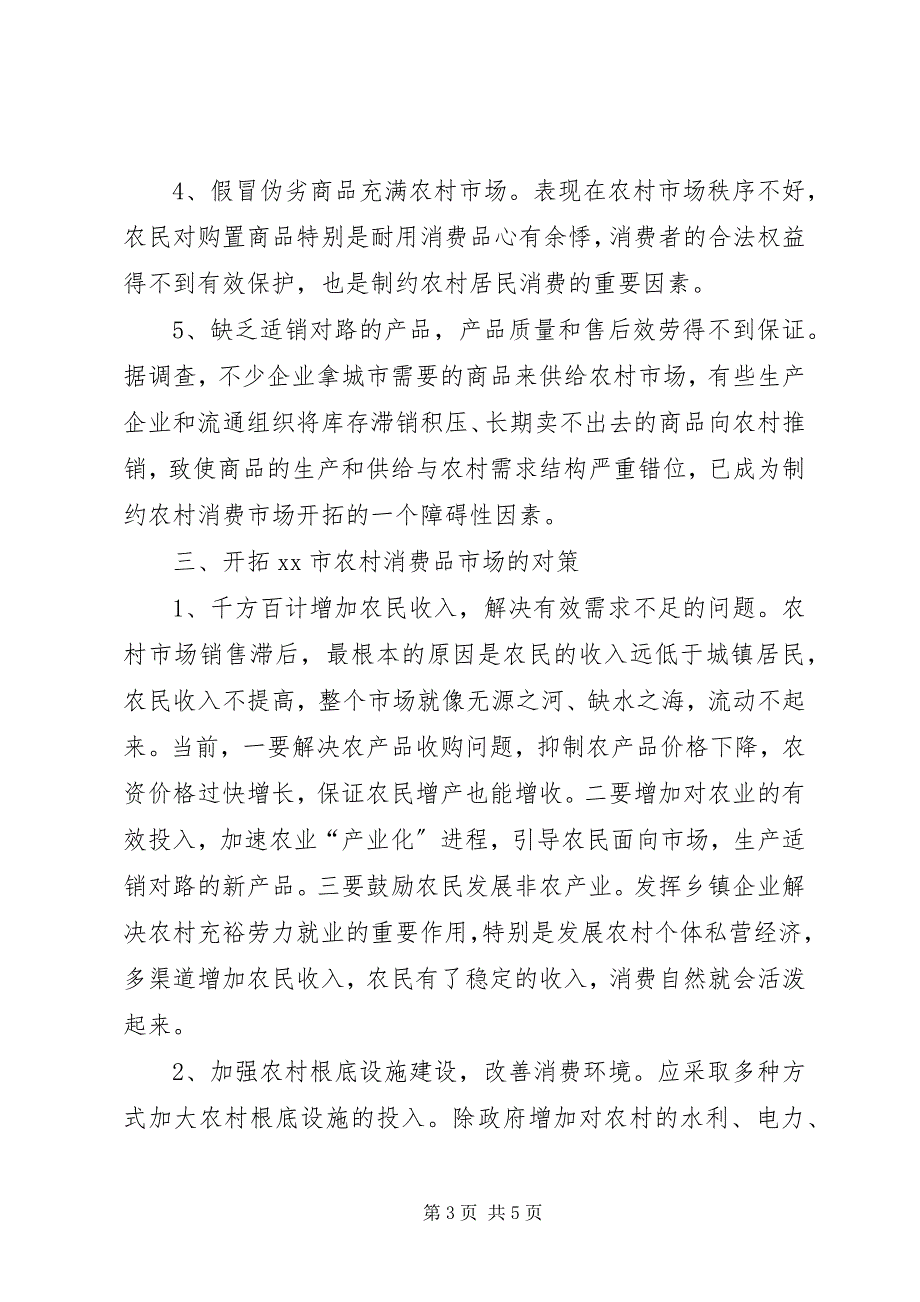 4、假冒伪劣商品充满农村市场。表现在农村市场秩序不好，
农民对购置商品特别是耐用消费品心有余悸，消费者的合法权益
得不到有效保护，也是制约农村居民消费的重要因素。
5、缺乏适销对路的产品，产品质量和售后效劳得不到保证。
据调查，不少企业拿城市需要的商品来供给农村市场，有些生产
企业和流通组织将库存滞销积压、长期卖不出去的商品向农村推
销，致使商品的生产和供给与农村需求结构严重错位，已成为制
约农村消费市场开拓的一个障碍性因素。
三、开拓 xx 市农村消费品市场的对策
1、千方百计增加农民收入，解决有效需求不足的问题。农
村市场销售滞后，最根本的原因是农民的收入远低于城镇居民，
农民收入不提高，整个市场就像无源之河、缺水之海，流动不起
来。当前，一要解决农产品收购问题，抑制农产品价格下降，农
资价格过快增长，保证农民增产也能增收。二要增加对农业的有
效投入，加速农业“产业化〞进程，引导农民面向市场，生产适
销对路的新产品。三要鼓励农民发展非农产业。发挥乡镇企业解
决农村充裕劳力就业的重要作用，特别是发展农村个体私营经济，
多渠道增加农民收入，农民有了稳定的收入，消费自然就会活泼
起来。
2、加强农村根底设施建设，改善消费环境。应采取多种方
式加大农村根底设施的投入。除政府增加对农村的水利、电力、
第 3 页 共 5 页